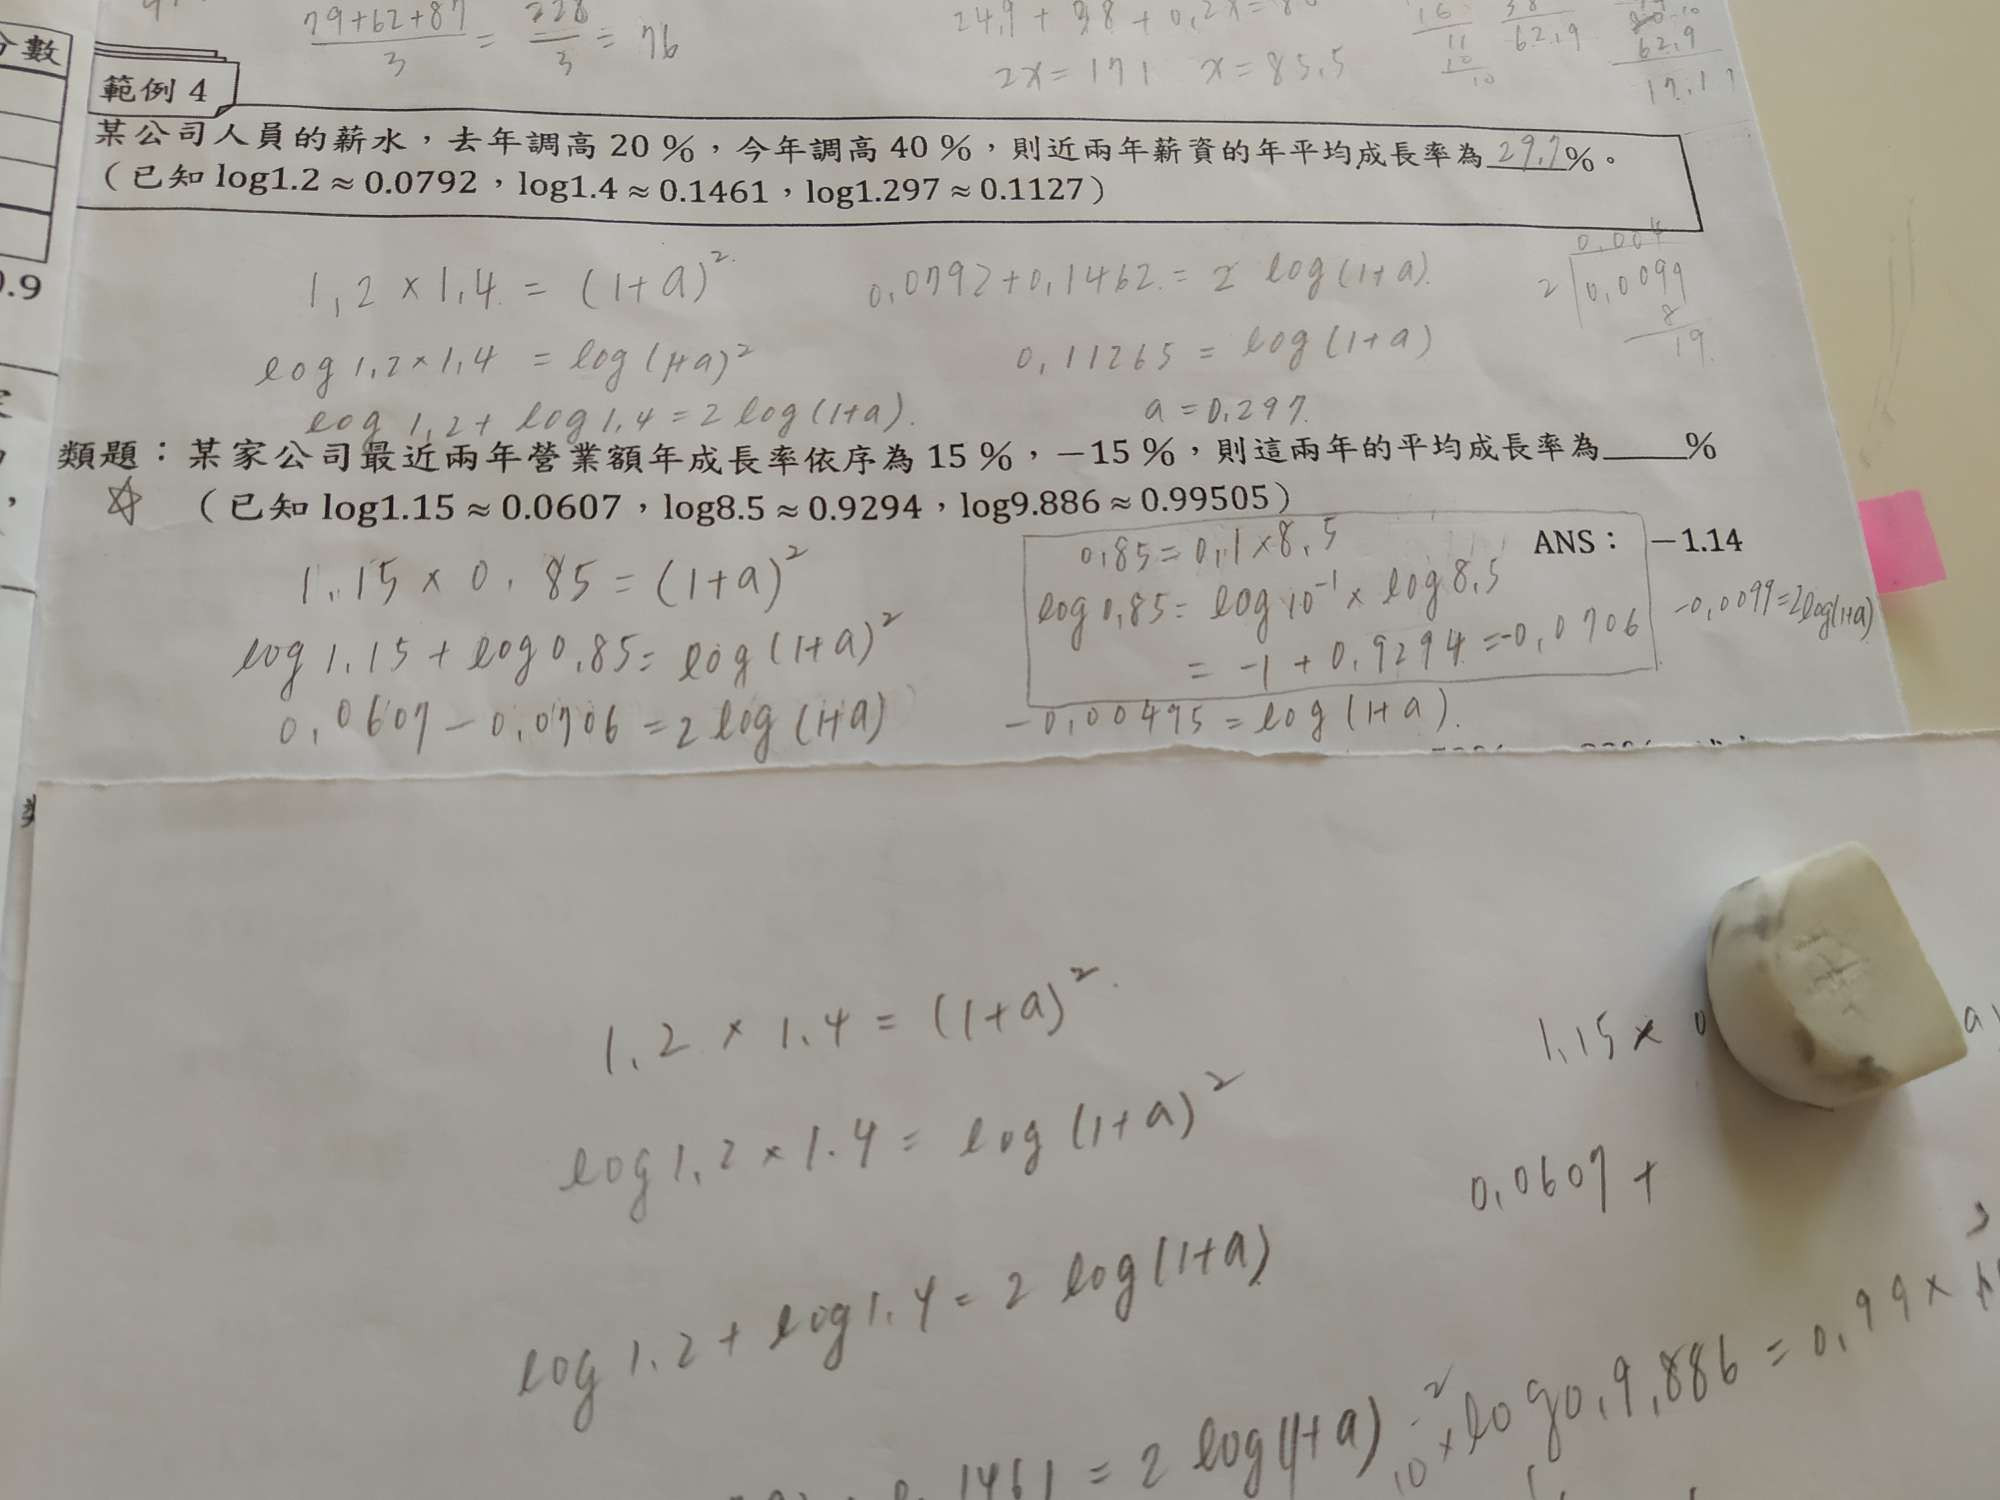 分數
79+62+87/3 = 228/3 = 76
24,9 + 38 + 0,2x = 80
2x = 171 x = 85,5
範例 4
某公司人員的薪水，去年調高 20 %，今年調高 40 %，則近兩年薪資的年平均成長率為 29,7 %。
（已知 log1.2 ≈ 0.0792，log1.4 ≈ 0.1461，log1.297 ≈ 0.1127）
1,2 × 1,4 = (1+a)²
log 1,2 × 1,4 = log (1+a)²
log 1,2 + log 1,4 = 2 log (1+a).
0,0792 + 0,1462 = 2 log (1+a)
0,11265 = log (1+a)
a = 0,297
0,004
2 0,0099
8
19
類題：某家公司最近兩年營業額年成長率依序為 15 %，−15 %，則這兩年的平均成長率為_____%
（已知 log1.15 ≈ 0.0607，log8.5 ≈ 0.9294，log9.886 ≈ 0.99505）
ANS： −1.14
1,15 × 0,85 = (1+a)²
log 1,15 + log 0,85 = log (1+a)²
0,0607 − 0,0706 = 2 log (1+a)
0,85 = 0,1 × 8,5
log 0,85 = log 10⁻¹ × log 8,5
= −1 + 0,9294 = −0,0706
−0,0099 = 2 log (1+a)
−0,00495 = log (1+a).
1,2 × 1,4 = (1+a)²
log 1,2 × 1.4 = log (1+a)²
log 1.2 + log 1.4 = 2 log (1+a)
1461 = 2 log (1+a)
1.15 ×
0,0607 +
log 0,9,886 = 0,99 ×